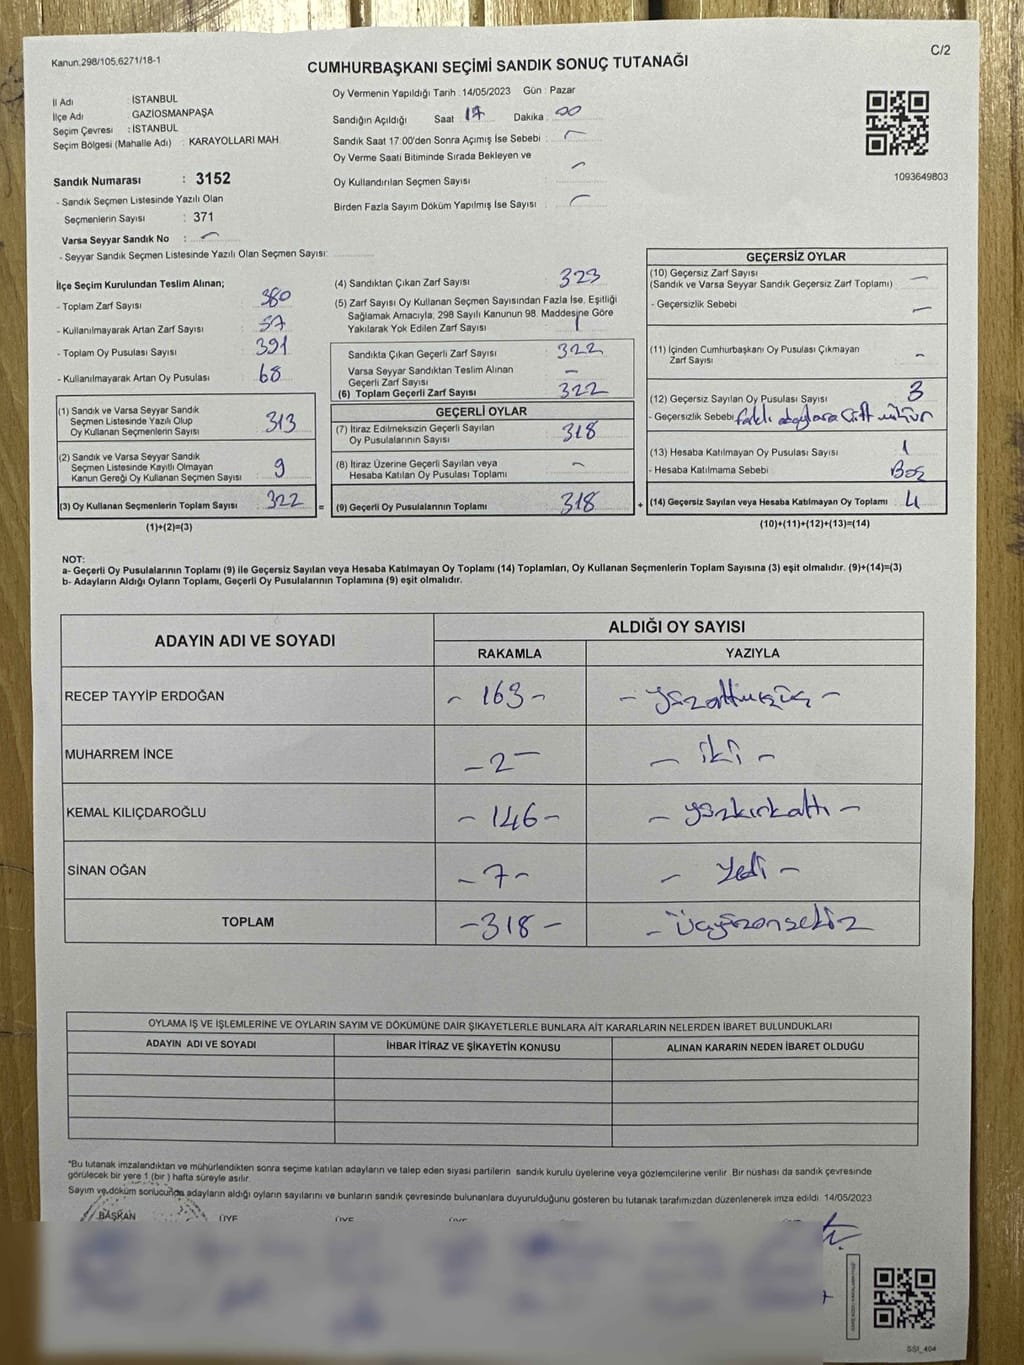 Kanun.298/105,6271/18-1
C/2
CUMHURBAŞKANI SEÇİMİ SANDIK SONUÇ TUTANAĞI
İl Adı : İSTANBUL
İlçe Adı : GAZİOSMANPAŞA
Seçim Çevresi : İSTANBUL
Seçim Bölgesi (Mahalle Adı) : KARAYOLLARI MAH
Sandık Numarası : 3152
- Sandık Seçmen Listesinde Yazılı Olan
Seçmenlerin Sayısı : 371
Varsa Seyyar Sandık No : -
- Seyyar Sandık Seçmen Listesinde Yazılı Olan Seçmen Sayısı:
Oy Vermenin Yapıldığı Tarih : 14/05/2023 Gün : Pazar
Sandığın Açıldığı Saat : 17 Dakika : 00
Sandık Saat 17:00'den Sonra Açımış İse Sebebi : -
Oy Verme Saati Bitiminde Sırada Bekleyen ve
Oy Kullandırılan Seçmen Sayısı : -
Birden Fazla Sayım Döküm Yapılmış İse Sayısı : -
1093649803
İlçe Seçim Kurulundan Teslim Alınan;
- Toplam Zarf Sayısı : 380
- Kullanılmayarak Artan Zarf Sayısı : 57
- Toplam Oy Pusulası Sayısı : 391
- Kullanılmayarak Artan Oy Pusulası : 68
(1) Sandık ve Varsa Seyyar Sandık
Seçmen Listesinde Yazılı Olup
Oy Kullanan Seçmenlerin Sayısı : 313
(2) Sandık ve Varsa Seyyar Sandık
Seçmen Listesinde Kayıtlı Olmayan
Kanun Gereği Oy Kullanan Seçmen Sayısı : 9
(3) Oy Kullanan Seçmenlerin Toplam Sayısı : 322
(1)+(2)=(3)
(4) Sandıktan Çıkan Zarf Sayısı : 323
(5) Zarf Sayısı Oy Kullanan Seçmen Sayısından Fazla İse, Eşitliği
Sağlamak Amacıyla; 298 Sayılı Kanunun 98. Maddesine Göre
Yakılarak Yok Edilen Zarf Sayısı : 1
Sandıkta Çıkan Geçerli Zarf Sayısı : 322
Varsa Seyyar Sandıktan Teslim Alınan
Geçerli Zarf Sayısı : -
(6) Toplam Geçerli Zarf Sayısı : 322
GEÇERLİ OYLAR
(7) İtiraz Edilmeksizin Geçerli Sayılan
Oy Pusulalarının Sayısı : 318
(8) İtiraz Üzerine Geçerli Sayılan veya
Hesaba Katılan Oy Pusulası Toplamı : -
= (9) Geçerli Oy Pusulalarının Toplamı : 318
GEÇERSİZ OYLAR
(10) Geçersiz Zarf Sayısı
(Sandık ve Varsa Seyyar Sandık Geçersiz Zarf Toplamı) : -
- Geçersizlik Sebebi : -
(11) İçinden Cumhurbaşkanı Oy Pusulası Çıkmayan
Zarf Sayısı : -
(12) Geçersiz Sayılan Oy Pusulası Sayısı : 3
- Geçersizlik Sebebi : farklı adaylara çift mühür
(13) Hesaba Katılmayan Oy Pusulası Sayısı : 1
- Hesaba Katılmama Sebebi : Boş
+ (14) Geçersiz Sayılan veya Hesaba Katılmayan Oy Toplamı : 4
(10)+(11)+(12)+(13)=(14)
NOT:
a- Geçerli Oy Pusulalarının Toplamı (9) ile Geçersiz Sayılan veya Hesaba Katılmayan Oy Toplamı (14) Toplamları, Oy Kullanan Seçmenlerin Toplam Sayısına (3) eşit olmalıdır. (9)+(14)=(3)
b- Adayların Aldığı Oyların Toplamı, Geçerli Oy Pusulalarının Toplamına (9) eşit olmalıdır.
ADAYIN ADI VE SOYADI
ALDIĞI OY SAYISI
RAKAMLA YAZIYLA
RECEP TAYYİP ERDOĞAN - 163 - - yüzaltmışüç -
MUHARREM İNCE - 2 - - iki -
KEMAL KILIÇDAROĞLU - 146 - - yüzkırkaltı -
SİNAN OĞAN - 7 - - Yedi -
TOPLAM - 318 - - üçyüzonsekiz
OYLAMA İŞ VE İŞLEMLERİNE VE OYLARIN SAYIM VE DÖKÜMÜNE DAİR ŞİKAYETLERLE BUNLARA AİT KARARLARIN NELERDEN İBARET BULUNDUKLARI
ADAYIN ADI VE SOYADI İHBAR İTİRAZ VE ŞİKAYETİN KONUSU ALINAN KARARIN NEDEN İBARET OLDUĞU
"Bu tutanak imzalandıktan ve mühürlendikten sonra seçime katılan adayların ve talep eden siyasi partilerin sandık kurulu üyelerine veya gözlemcilerine verilir. Bir nüshası da sandık çevresinde
görülecek bir yere 1 (bir ) hafta süreyle asılır.
Sayım ve döküm sonucunda adayların aldığı oyların sayılarını ve bunların sandık çevresinde bulunanlara duyurulduğunu gösteren bu tutanak tarafımızdan düzenlenerek imza edildi. 14/05/2023
BAŞKAN ÜYE ÜYE
SSI_404